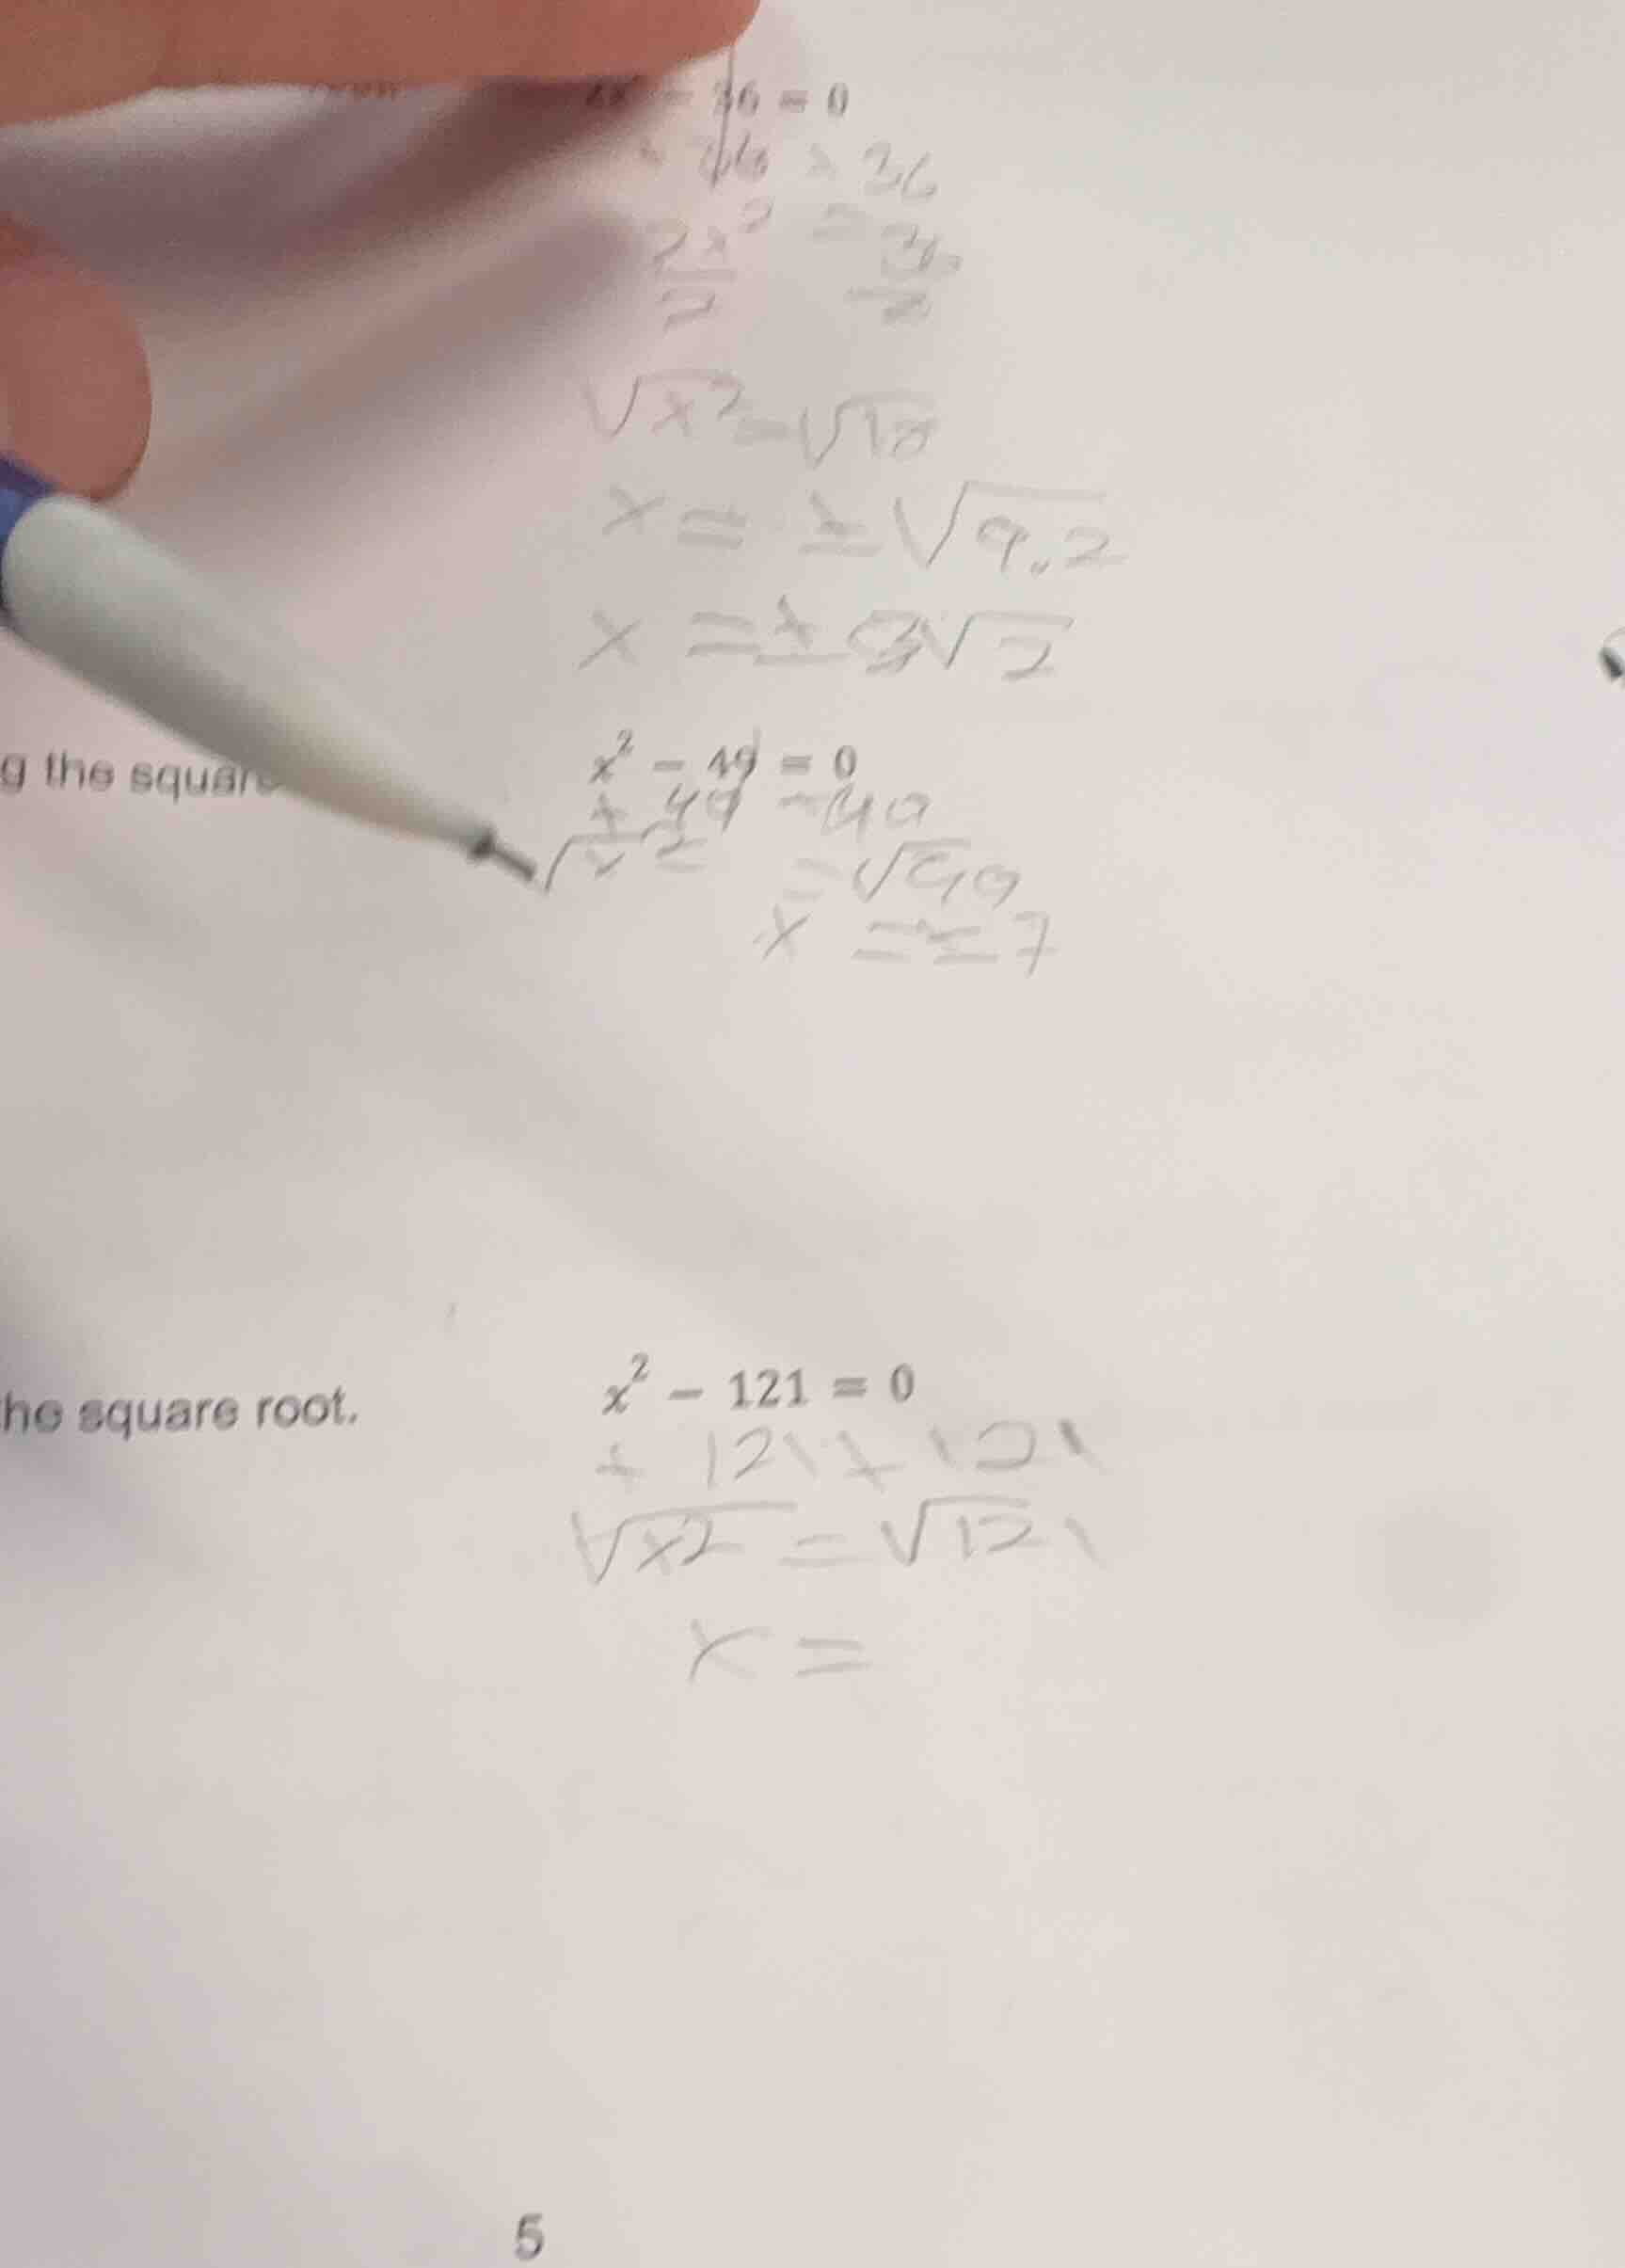 2x² - 36 = 0
+ 36 + 36
2x² = 36
2 2
√x² = √18
x = ± √9.2
x = ± 3√2
g the square
x² - 49 = 0
+ 49 - 49
√x² = √49
x = ± 7
he square root.
x² - 121 = 0
+ 121 + 121
√x2 = √121
x =
5